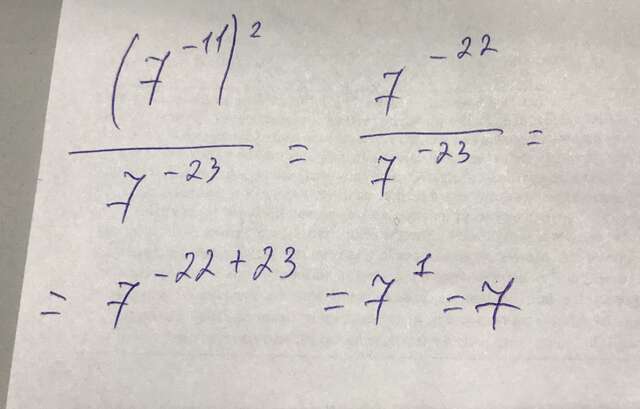 (7^{-11})^2 / 7^{-23} = 7^{-22} / 7^{-23} =
= 7^{-22+23} = 7^1 = 7